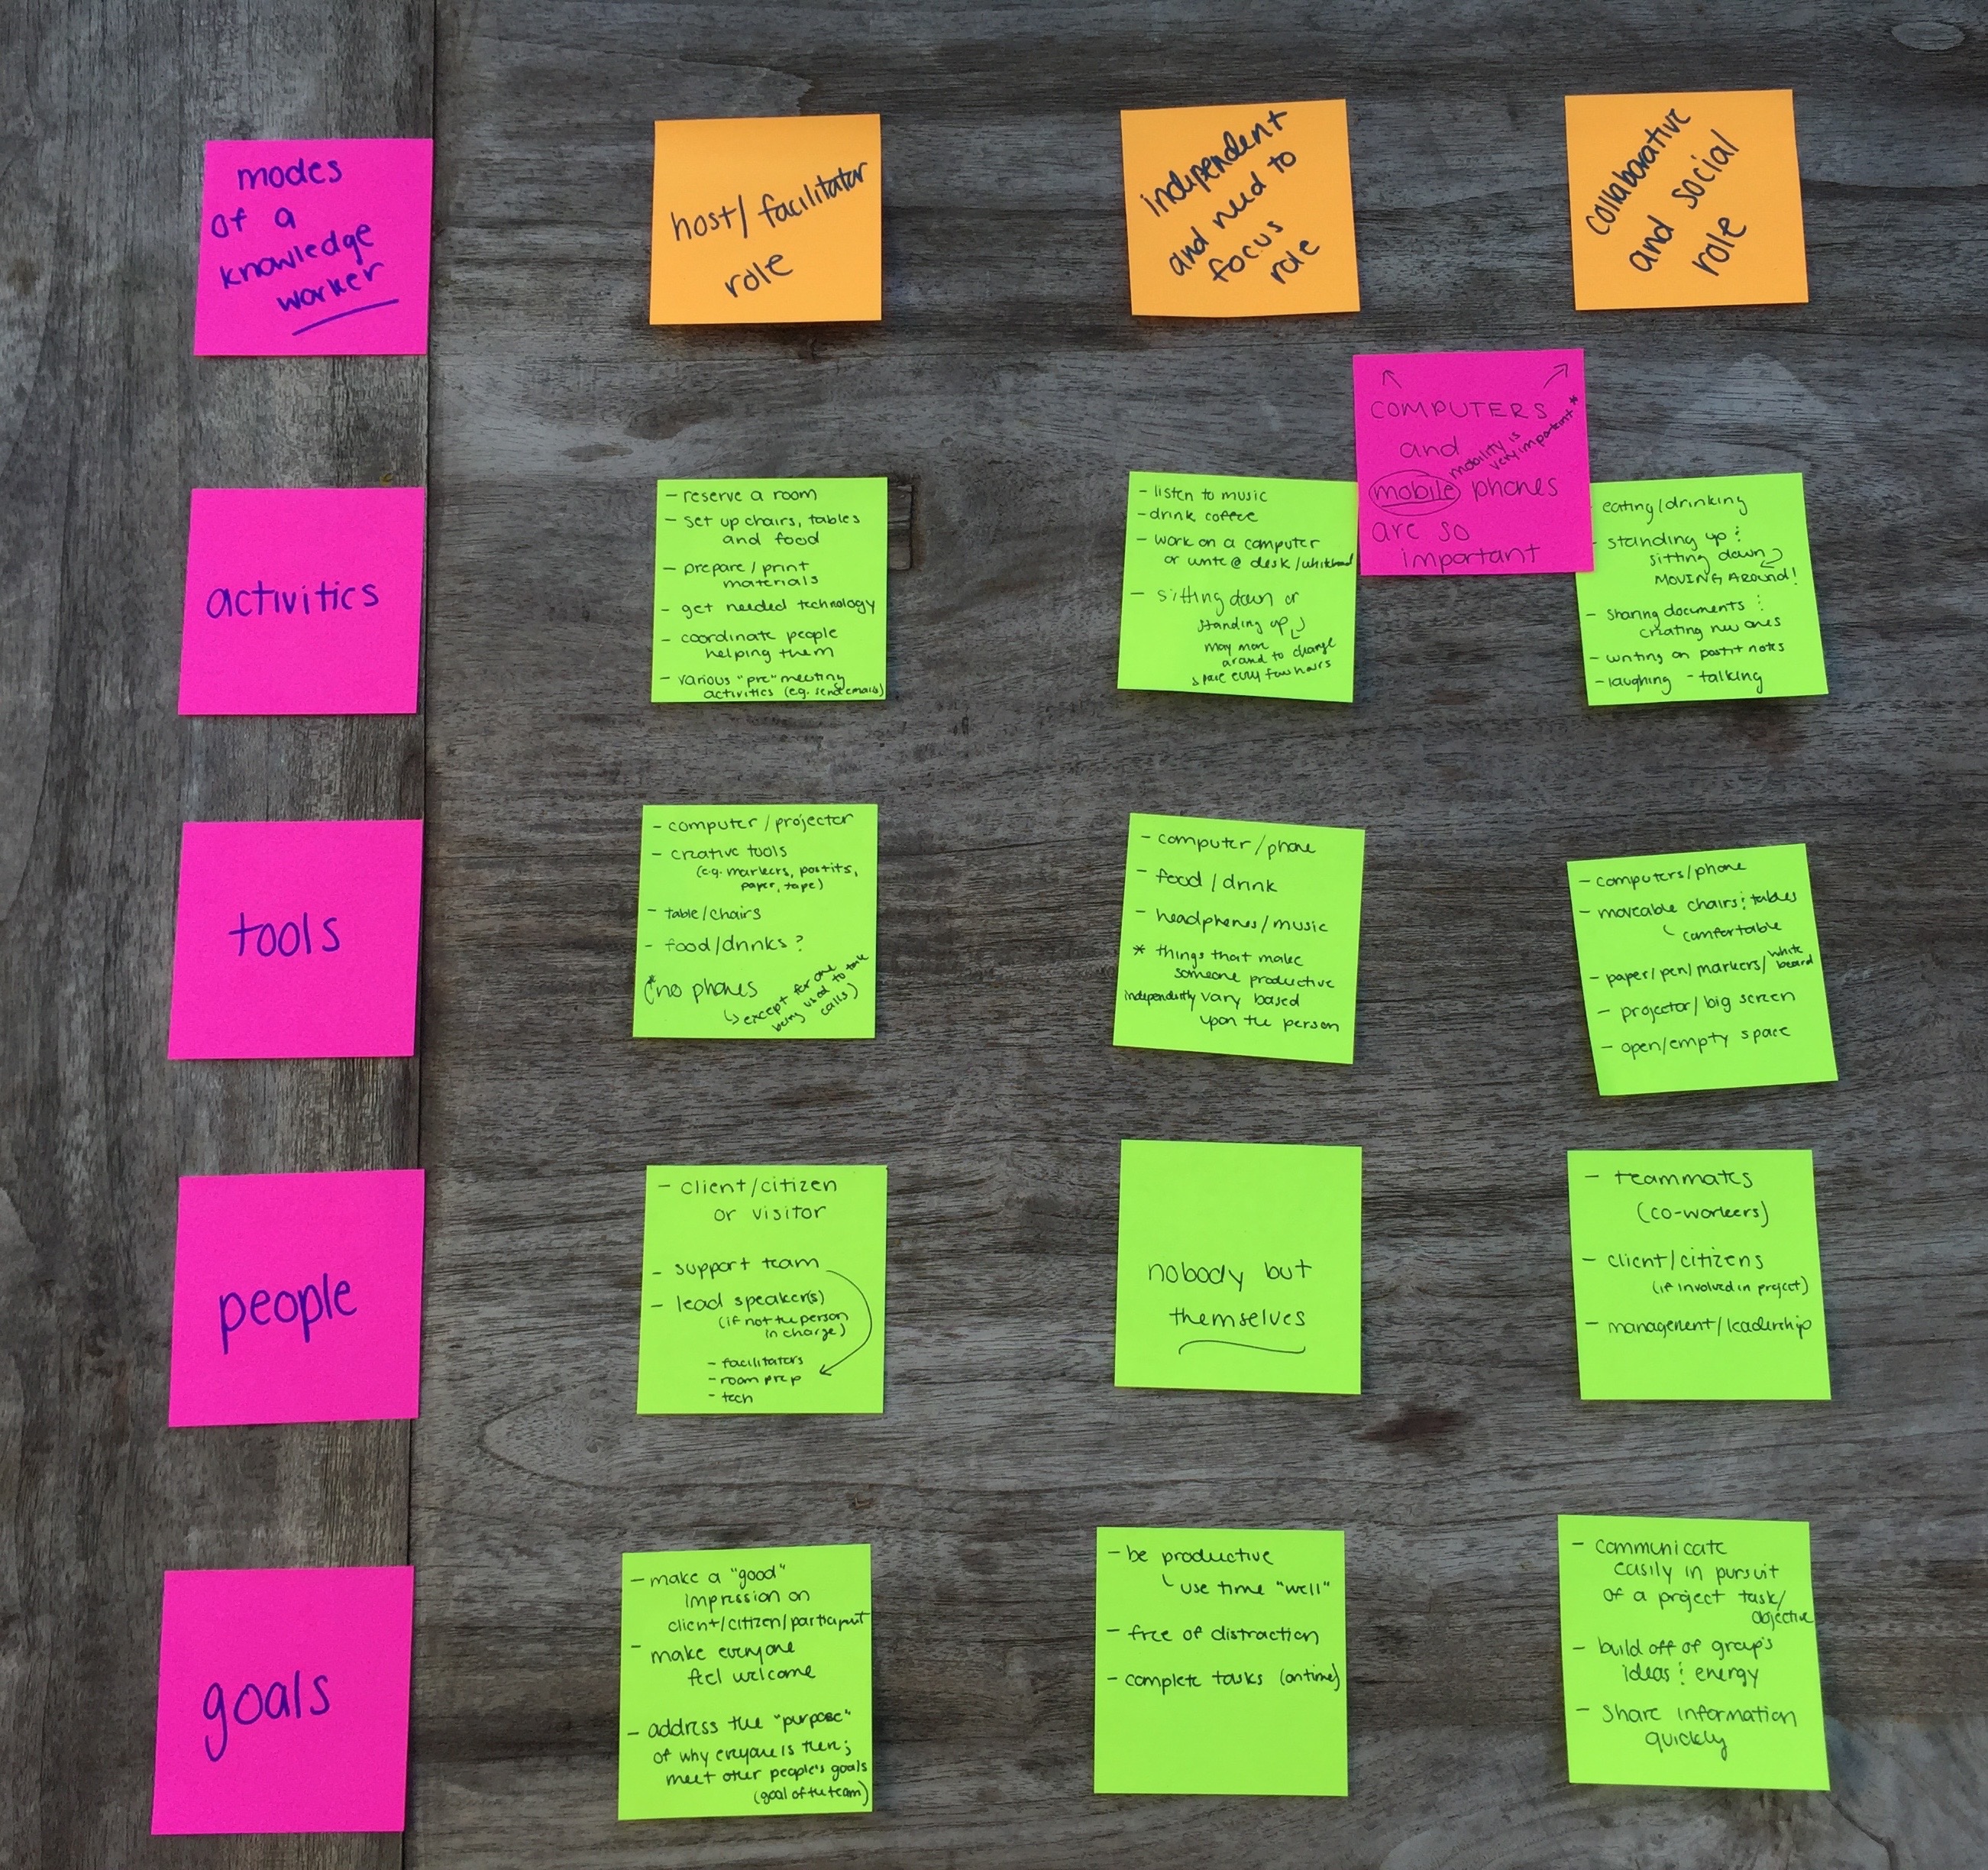 modes
of a
knowledge
worker
host/facilitator
role
independent
and need to
focus
role
collaborative
and social
role
COMPUTERS
and
mobile phones
are so
important
mobility is
very important *
activities
- reserve a room
- set up chairs, tables
and food
- prepare/print
materials
- get needed technology
- coordinate people
helping them
- various "pre" meeting
activities (e.g. send emails)
- listen to music
- drink coffee
- work on a computer
or write @ desk/whiteboard
- sitting down or
standing up
may move
around to change
space every few hours
eating/drinking
- standing up &
sitting down
MOVING AROUND!
- sharing documents &
creating new ones
- writing on postit notes
- laughing - talking
tools
- computer/projector
- creative tools
(e.g. markers, postits,
paper, tape)
- table/chairs
- food/drinks?
* (no phones
↳ except for one
being used to take
calls)
- computer/phone
- food/drink
- headphones/music
* things that make
someone productive
independently vary based
upon the person
- computers/phone
- moveable chairs & tables
comfortable
- paper/pen/markers/white
board
- projector/big screen
- open/empty space
people
- client/citizen
or visitor
- support team
- lead speaker(s)
(if not the person
in charge)
- facilitators
- room prep
- tech
nobody but
themselves
- teammates
(co-workers)
- client/citizens
(if involved in project)
- management/leadership
goals
- make a "good"
impression on
client/citizen/participant
- make everyone
feel welcome
- address the "purpose"
of why everyone is there;
meet other people's goals
(goal of the team)
- be productive
use time "well"
- free of distraction
- complete tasks (on time)
- communicate
easily in pursuit
of a project task/
objective
- build off of group's
ideas & energy
- share information
quickly